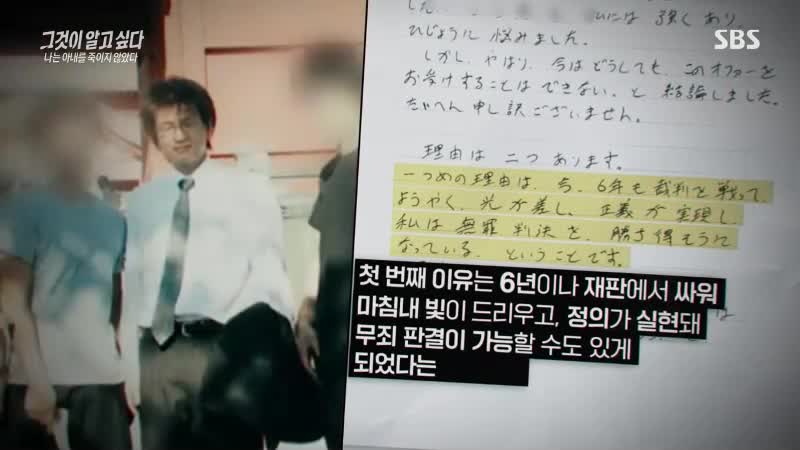 그것이 알고 싶다
나는 아내를 죽이지 않았다
SBS
した。 には 強く あり、
ひじょうに 悩みました。
しかし、やはり、今はどうしても、このオファーを
お受けすることは できない、と 結論しました。
たいへん 申し訳ございません。
理由は 二つ あります。
一つめの理由は、もう、6年も 裁判を 戦って、
ようやく、光が差し、正義が 実現し、
私は 無罪判決を、勝ち得そうに
なっている、ということです。
첫 번째 이유는 6년이나 재판에서 싸워
마침내 빛이 드리우고, 정의가 실현돼
무죄 판결이 가능할 수도 있게
되었다는